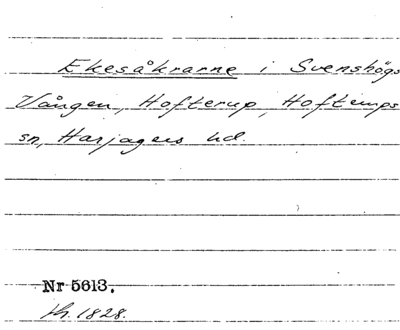 Ekesåkrarne i Svenshögs
Vången, Hofterup, Hofterups
sn, Harjagers hd.
Nr 5613.
1828.